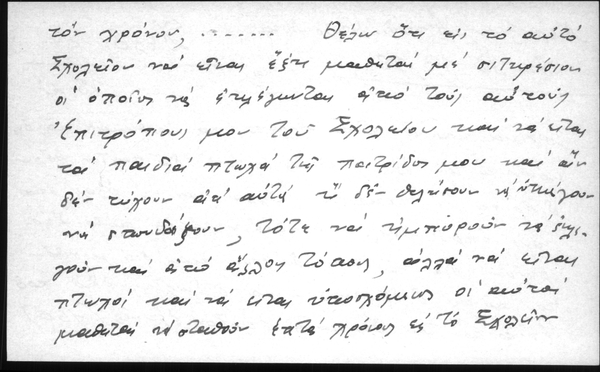 τὸν χρόνον, ........ Θέλω ὅτι εἰς τὸ αὐτὸ
Σχολεῖον νὰ εἶναι ἕξη μαθηταὶ μὲ σιτηρέσιον
οἱ ὁποῖοι νὰ ἐκλέγωνται ἀπὸ τοὺς αὐτοὺς
Ἐπιτρόπους μου τοῦ Σχολείου καὶ νὰ εἶναι
τὰ παιδιὰ πτωχὰ τῆς πατρίδος μου καὶ ἂν
δὲν τύχουν ἀπ' αὐτὰ ἢ δὲν θελήσουν νὰ ὑπάγουν
νὰ σπουδάξουν, τότε νὰ ἠμποροῦν νὰ ἐκλε-
γοῦν καὶ ἀπὸ ἄλλους τόπους, ἀλλὰ νὰ εἶναι
πτωχοὶ καὶ νὰ εἶναι ὑπόσχόμενοι οἱ αὐτοὶ
μαθηταὶ νὰ σταθοῦν ἑπτὰ χρόνους εἰς τὸ Σχολεῖον